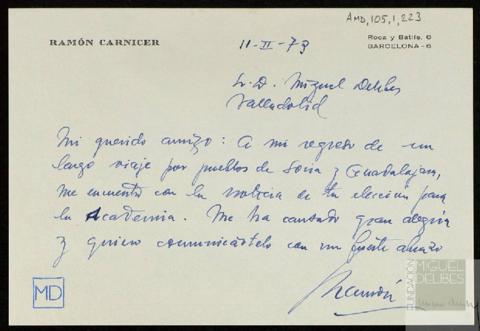 AMD,105,1,223
RAMÓN CARNICER
Roca y Batlle, 6
BARCELONA - 6
11-II-73
Sr. D. Miguel Delibes
Valladolid
Mi querido amigo: A mi regreso de un
largo viaje por pueblos de Soria y Guadalajara,
me encuentro con la noticia de tu elección para
la Academia. Me ha causado gran alegría
y quiero comunicártelo con un fuerte abrazo
Ramón
MD
FUNDACIÓN
MIGUEL
DELIBES